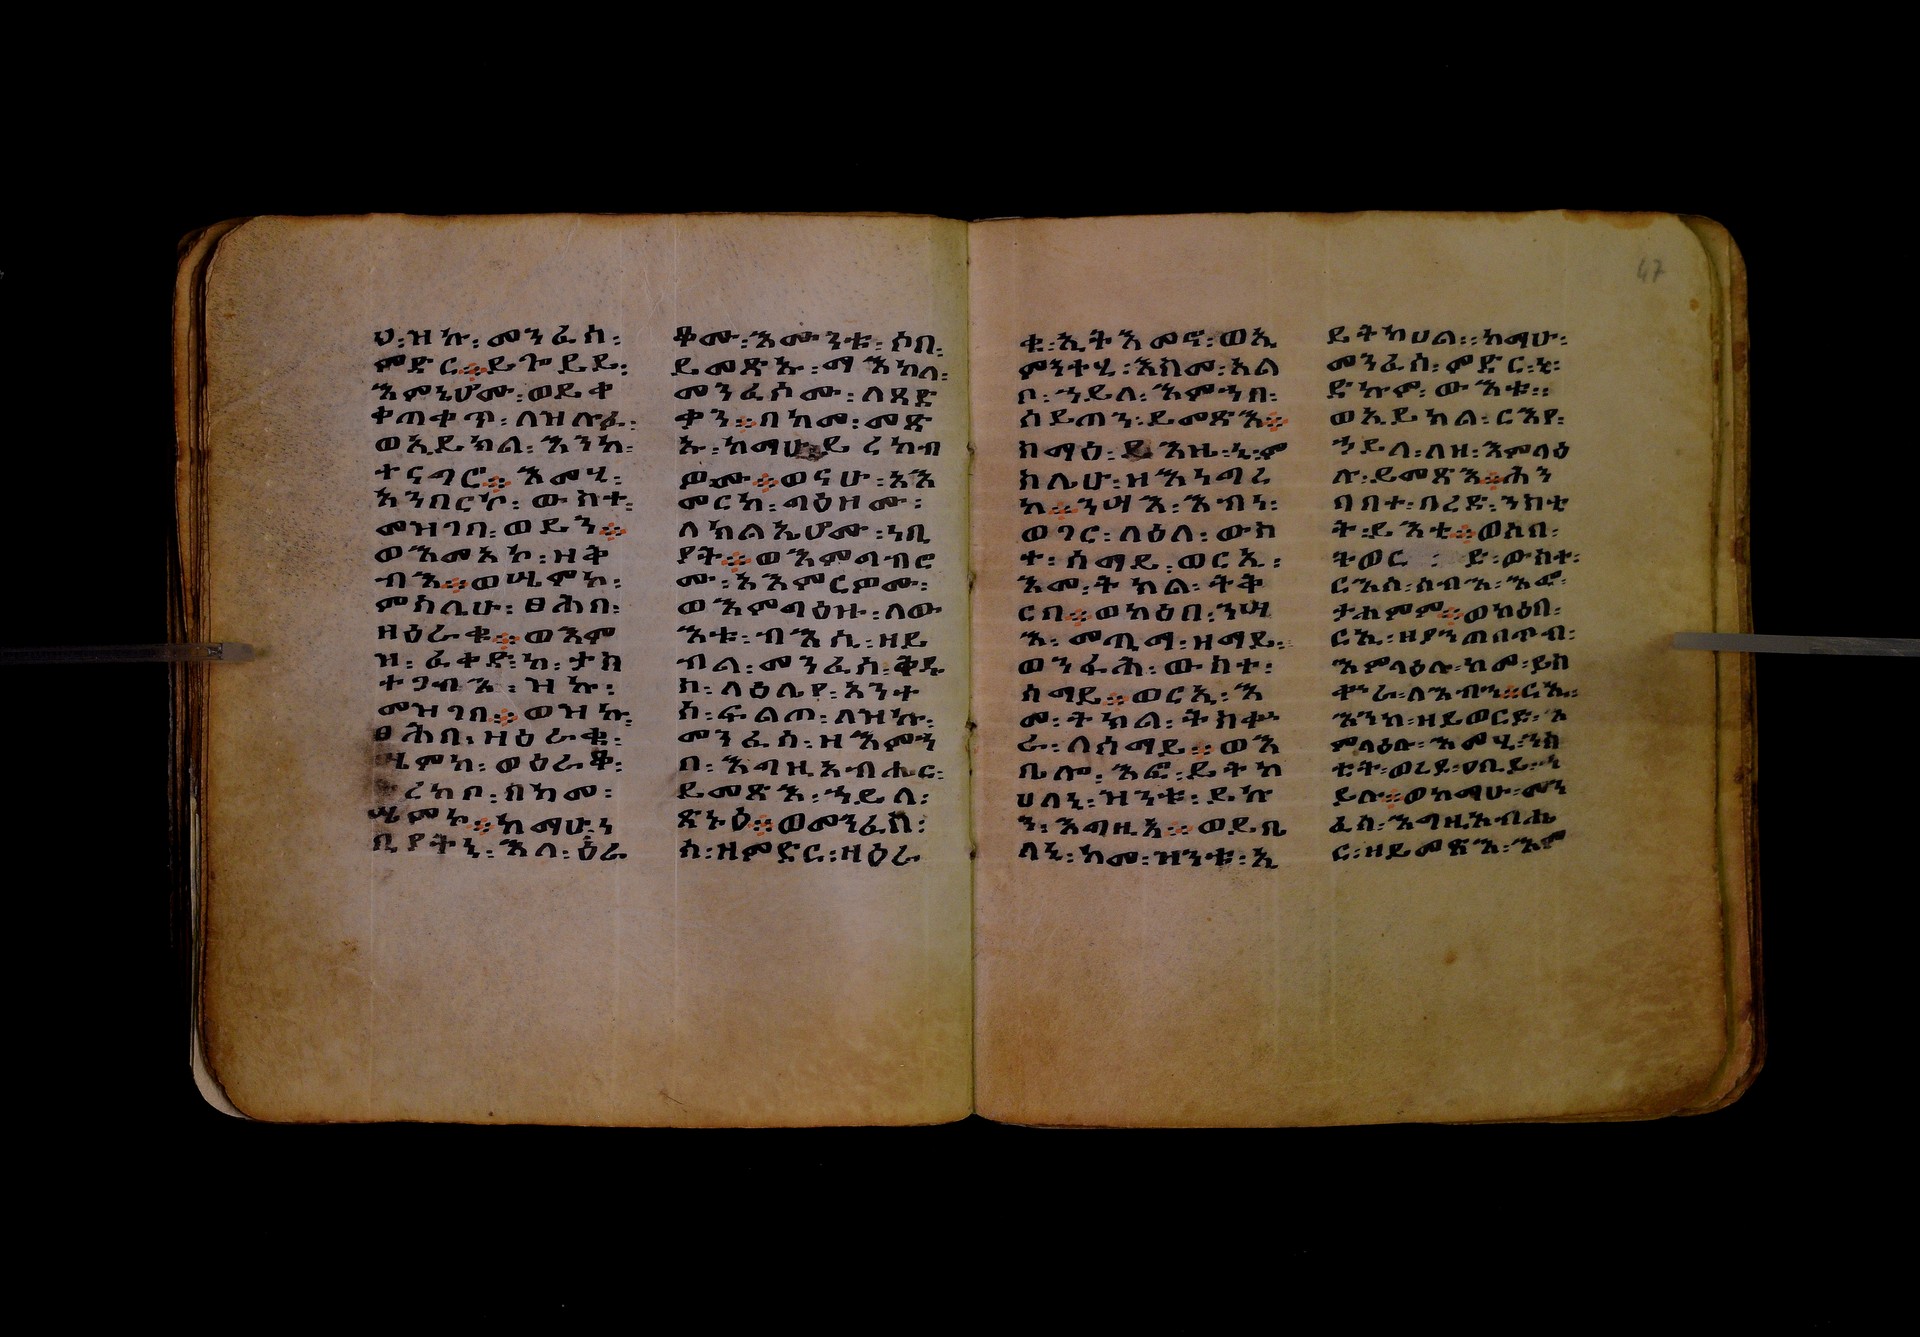 ህ፡ዝኩ፡መንፈስ፡
ምድር።ይጐይይ፡
እምኒሆሙ፡ወይቀ
ቀጠቀጥ፡ለዝሉፉ፡
ወኢይክል፡እንከ፡
ተናግሮ።እመሂ፡
አንበርዮ፡ውስተ፡
መዝገበ፡ወይን።
ወእመአኮ፡ዘቅ
ብእ።ወሤምከ፡
ምስሌሁ፡ፀሕበ፡
ዘዕራቁ።ወእም
ዝ፡ፈቀድከ፡ታስ
ተጋብእ፡ዝኩ፡
መዝገበ።ወዝኩ፡
ፀሕበ፡ዘዕራቁ፡
ሤምከ፡ወዕራቆ፡
ትረክቦ፡በከመ፡
ሤምኮ።ከማሁ፡ነ
ቢያትኒ፡እለ፡ዕራ
ቆሙ፡እሙንቱ፡ሶበ፡
ይመጽኡ፡ማእከለ፡
መንፈሶሙ፡ለጻድ
ቃን።በከመ፡መጽ
ኡ፡ከማሁ፡ይረከብ
ዎሙ።ወናሁ፡አእ
መርከ፡ግዕዘሙ፡
ለክልኤሆሙ፡ነቢ
ያት።ወእምግብሮ
ሙ፡አእምርዎሙ፡
ወእምግዕዙ፡ለው
እቱ፡ብእሲ፡ዘይ
ብል፡መንፈስ፡ቅዱ
ስ፡ላዕሌየ፡አንተ
ሰ፡ፍልጦ፡ለዝኩ፡
መንፈስ፡ዘእምኀ
በ፡እግዚአብሔር፡
ይመጽእ፡ኀይለ፡
ጽኑዕ።ወመንፈስ፡
ሰ፡ዘምድር፡ዘዕራ
ቁ፡ኢትእመኖ፡ወኢ
ምንተሂ፡እስመ፡አል
ቦ፡ኀይለ፡እምኀበ፡
ሰይጣን፡ይመጽእ።
ስማዕ፡ይእዜ፡ኒ፡ም
ስሌሁ፡ዘእነግረ
ከ።ንሣእ፡እብነ፡
ወገሮ፡ላዕለ፡ውስ
ተ፡ሰማይ፡ወርኢ፡
እመ፡ትክል፡ትቅ
ርበ።ወካዕበ፡ንሣ
እ፡መጢማ፡ዘማይ፡
ወንፋሕ፡ውስተ፡
ሰማይ።ወርኢ፡እ
መ፡ትክል፡ትስቍ
ራ፡ለሰማይ።ወእ
ቤሎ፡እፎ፡ይትከ
ሀለኒ፡ዝንቱ፡ይኩ
ን፡እግዚእ።ወይቤ
ለኒ፡ከመ፡ዝንቱ፡ኢ
ይትከሀል።ከማሁ፡
መንፈሰ፡ምድር፡ኒ፡
ድኩም፡ውእቱ።
ወኢይክል፡ርእየ፡
ኀይለ፡ለዘ፡እምላዕ
ሉ፡ይመጽእ።ሕን
ባበተ፡በረድ፡ንስቲ
ት፡ይእቲ።ወሶበ፡
ትወርድ፡ውስተ፡
ርእሰ፡ሰብእ፡እፎ፡
ታሐምም።ወካዕበ፡
ርኢ፡ዘያንጠበጥብ፡
እምላዕሉ፡ከመ፡ይስ
ቍራ፡ለእብን።ርኢ፡
እንከ፡ዘይወርድ፡እ
ምላዕሉ፡እመሂ፡ንስ
ቲት፡ወረደ፡ዐቢይ፡ኀ
ይሉ።ወከማሁ፡መን
ፈስ፡እግዚአብሔ
ር፡ዘይመጽእ፡እም
47